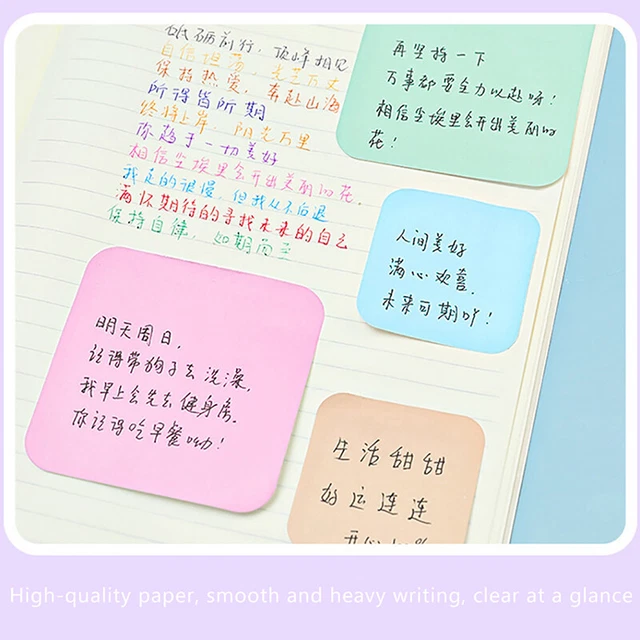 砥砺前行,顶峰相见
自信坦荡,光芒万丈
保持热爱,奔赴山海
所得皆所期
终将上岸,阳光万里
你趋于一切美好
相信尘埃里会开出美丽的花.
我走的很慢,但我从不后退
满怀期待的寻找未来的自己
保持自律,如期而至
再坚持一下
万事都要全力以赴呀!
相信尘埃里会开出美丽的
花!
人间美好
满心欢喜.
未来可期吖!
明天周日,
记得带狗子去洗澡,
我早上会先去健身房.
你记得吃早餐呦!
生活甜甜
好运连连
开心
High-quality paper, smooth and heavy writing, clear at a glance